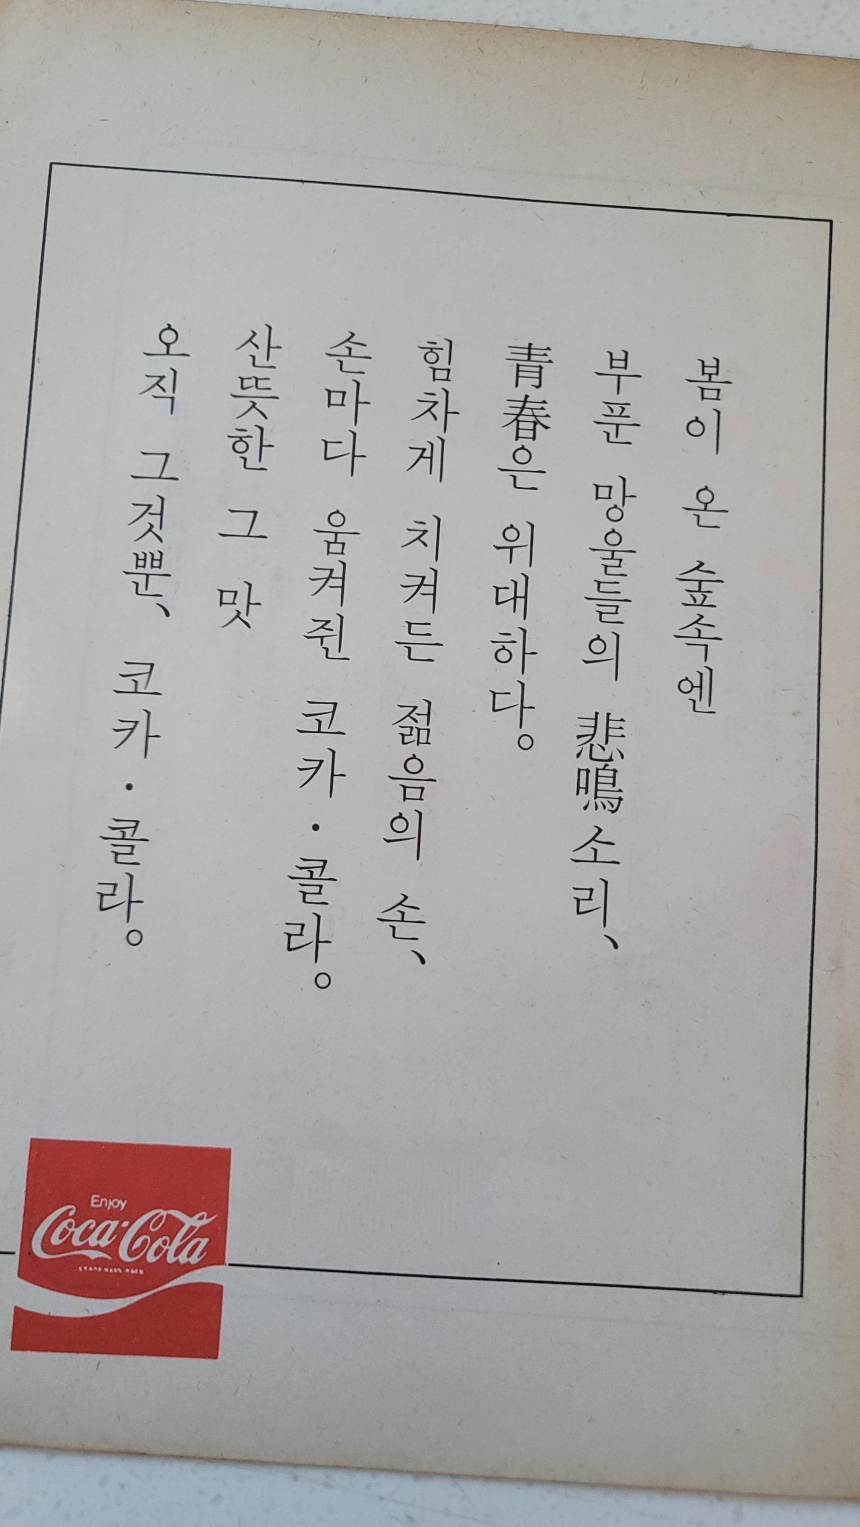 봄이 온 숲속엔
부푼 망울들의 悲鳴소리、
青春은 위대하다。
힘차게 치켜든 젊음의 손、
손마다 움켜쥔 코카·콜라。
산뜻한 그 맛
오직 그것뿐、 코카·콜라。
Enjoy
Coca-Cola
TRADE MARK REG